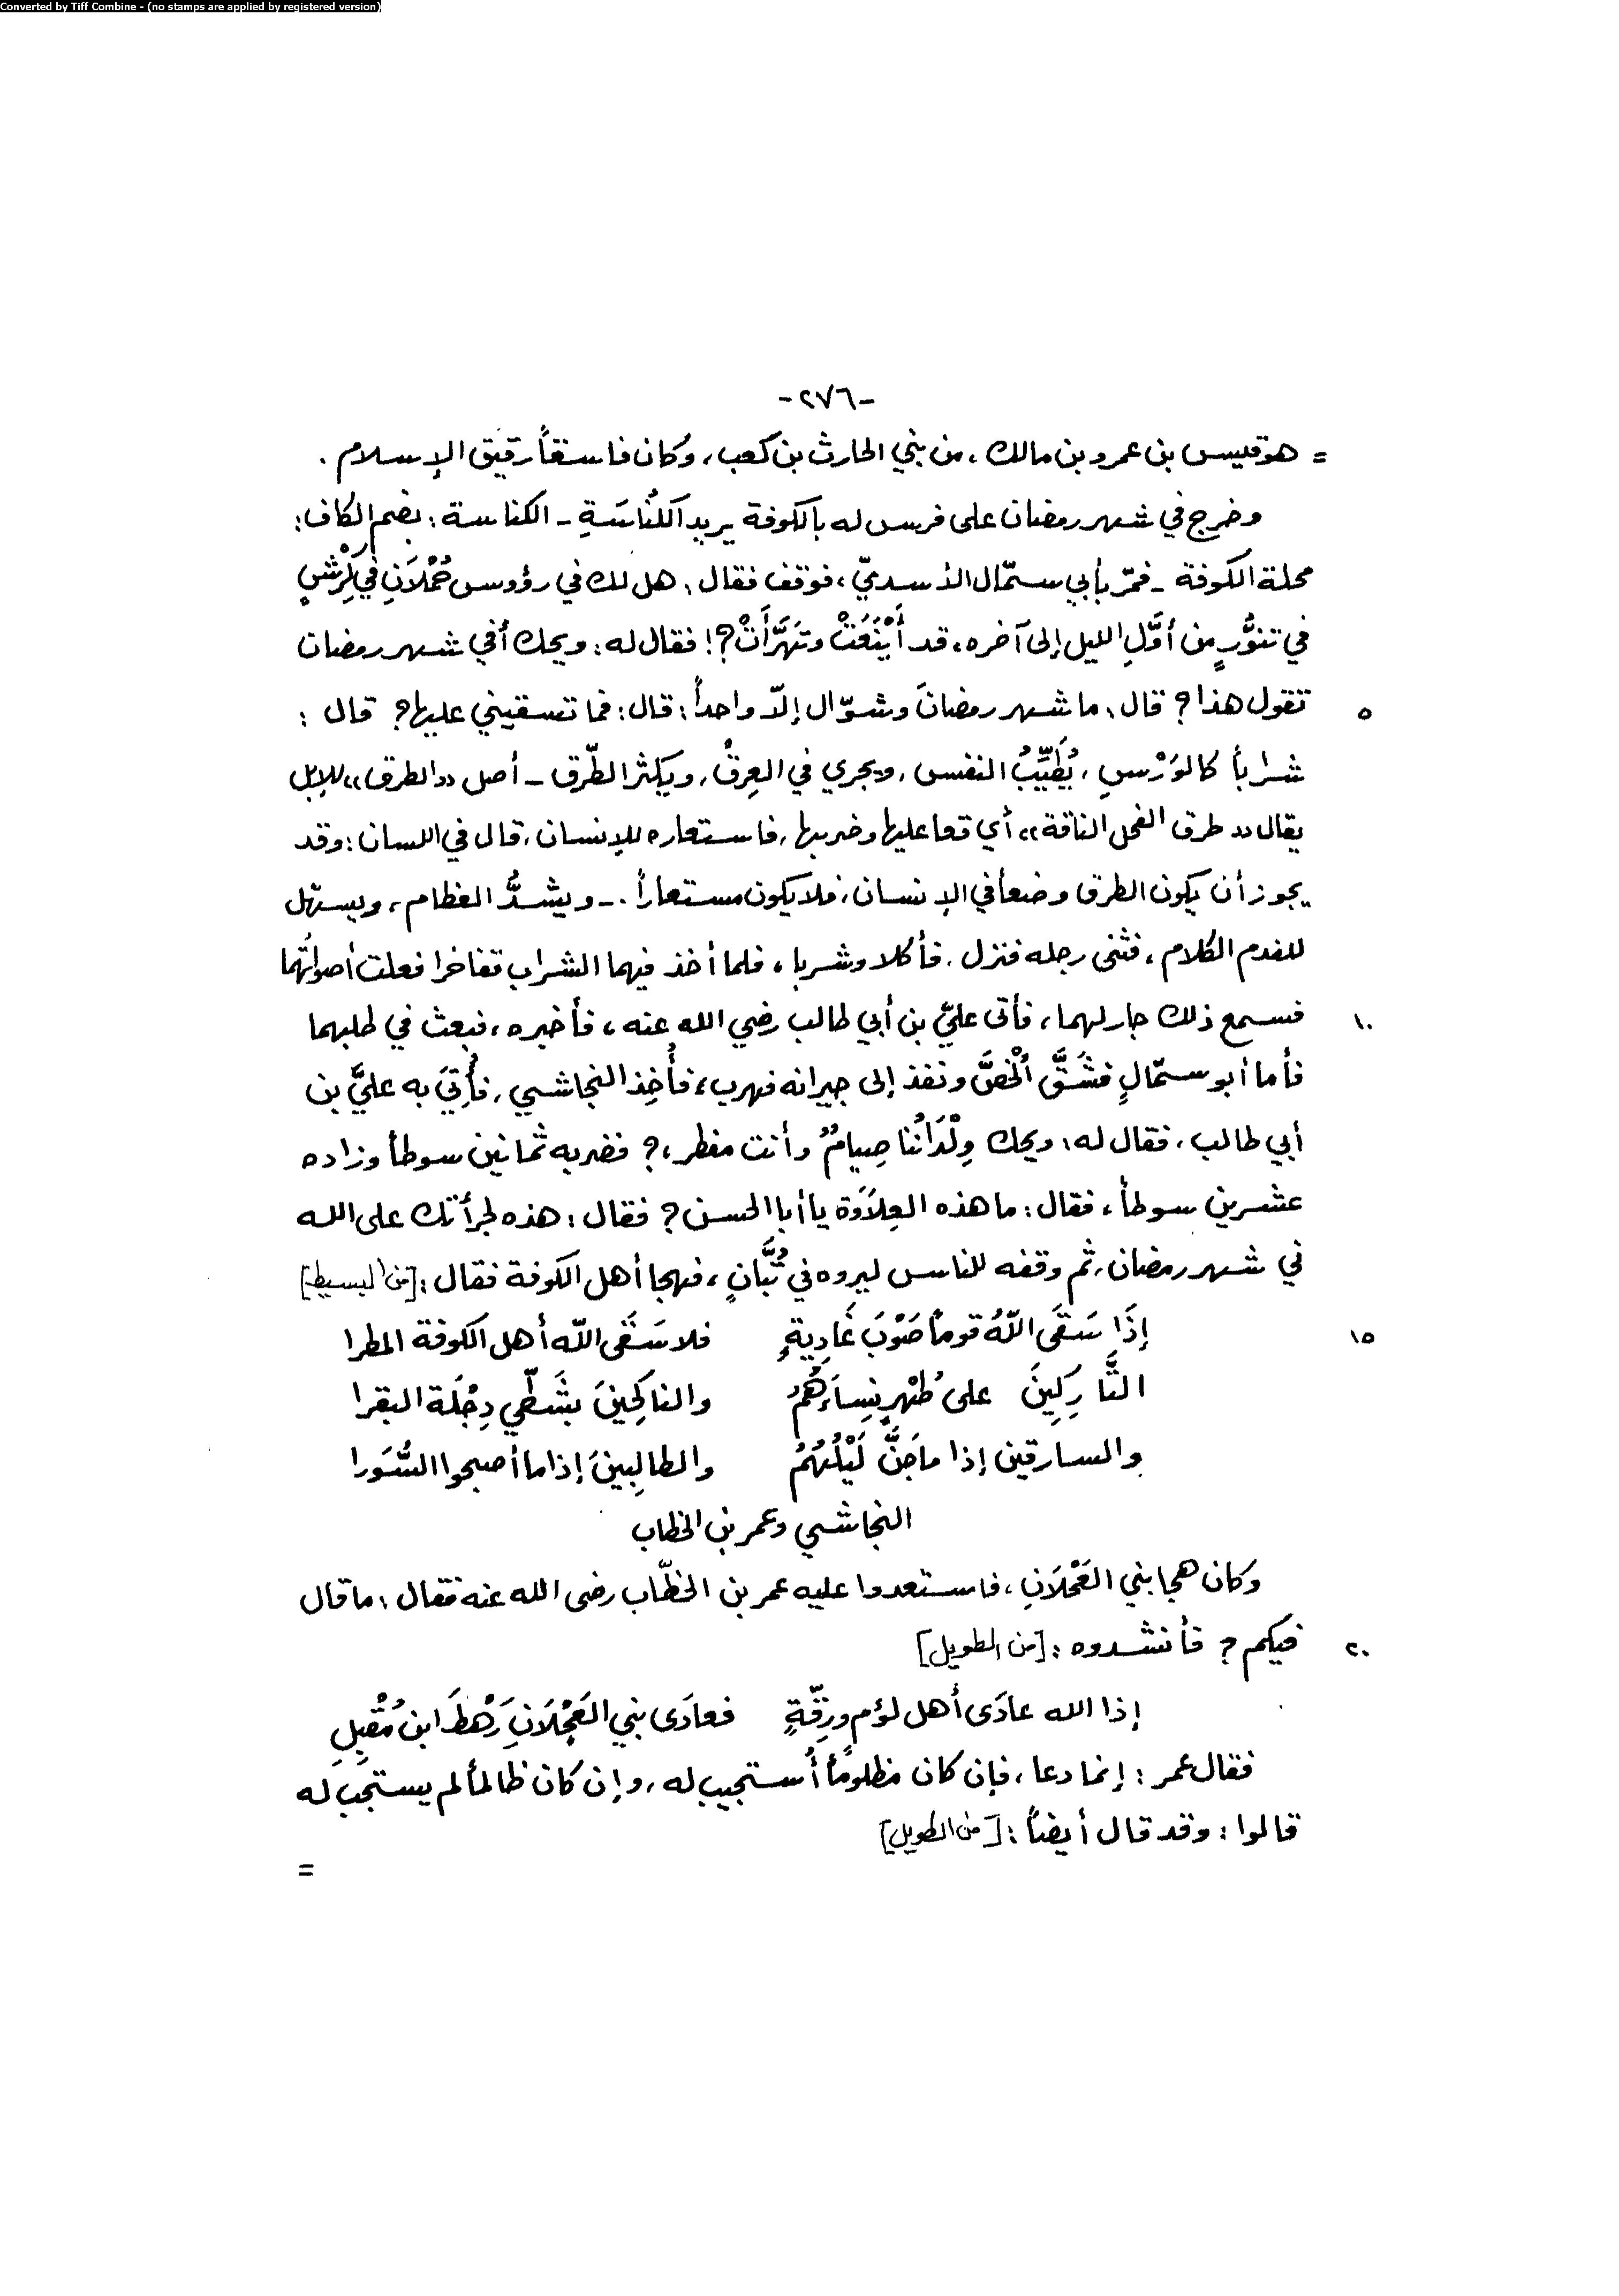 Converted by Tiff Combine - (no stamps are applied by registered version)
-٢٧٦-
= هو قيس بن عمرو بن مالك، من بني الحارث بن كعب، وكان فاسقاً رقيق الإسلام.
وخرج في شهر رمضان على فرس له بالكوفة يريد الكُنَاسَةِ - الكناسة: بضم الكاف:
محلة الكوفة - فمرّ بأبي سمّال الأسديّ، فوقف فقال: هل لك في رؤوس حُمْلَانٍ في كِرْشٍ
في تنوُّرٍ من أوَّلِ الليل إلى آخره، قد أَيْنَعَتْ وتَهَرَّأَتْ؟! فقال له: ويحك أفي شهر رمضان
تقول هذا؟ قال: ما شهر رمضانَ وشوّال إلاّ واحداً: قال: فما تسقيني عليها؟ قال:
٥
شراباً كالوَرْسِ، يُطَيِّبُ النفس، ويجري في العِرقْ، ويكثر الطّرق - أصل «الطرق» للإبل
يقال «طرق الفحل الناقة» أي قعا عليها وضربها، فاستعاره للإنسان، قال في اللسان: وقد
يجوز أن يكون الطرق وضعاً في الإنسان، فلا يكون مستعاراً. - ويشدُّ العظام، ويسهّل
للفدم الكلام، فثنى رجله فنزل، فأكلا وشربا، فلما أخذ فيهما الشراب تفاخرا فعلت أصواتُهما
فسمع ذلك جار لهما، فأتى عليّ بن أبي طالب رضي الله عنه، فأخبره، فبعث في طلبهما
١٠
فأما أبو سمّالٍ فشَقَّ الْخصَّ ونفذ إلى جيرانه فهرب، فأُخِذ النجاشي، فأُتِيَ به عليَّ بن
أبي طالب، فقال له: ويحك وِلْدَانُنا صِيامٌ وأنت مفطر،؟ فضربه ثمانين سوطاً وزاده
عشرين سوطاً، فقال: ما هذه العِلاَوَة يا أبا الحسن؟ فقال: هذه لجرأتك على الله
في شهر رمضان، ثم وقفه للناس ليروه في تُبَّانٍ، فهجا أهل الكوفة فقال: [من البسيط]
إذَا سَقَى اللّهُ قوماً صَوْبَ غَادِيةٍ فلا سَقَى اللّه أهل الكوفة المطرا
١٥
التَّارِكِينَ على طُهْرٍ نِسَاءَهُمُ والناكِحِينَ بشَطَّي دِجْلَة البقرا
والسارقين إذا ما جَنَّ لَيْلُهُمُ والطالِبِينَ إذا ما أصبحوا السُّوَرا
النجاشي وعمر بن الخطاب
وكان هجا بني العَجْلَانِ، فاستعدوا عليه عمر بن الخطّاب رضى الله عنه فقال: ما قال
فيكم؟ فأنشدوه: [من الطويل]
٢٠
إذا الله عادَى أهل لؤم ورِقَّةٍ فعادَى بني العَجْلَانِ رَهْطَ ابن مُقْبِلِ
فقال عمر: إنما دعا، فإن كان مظلوماً أُستجيب له، وإن كان ظالماً لم يستجب له
قالوا: وقد قال أيضاً: [من الطويل]
=